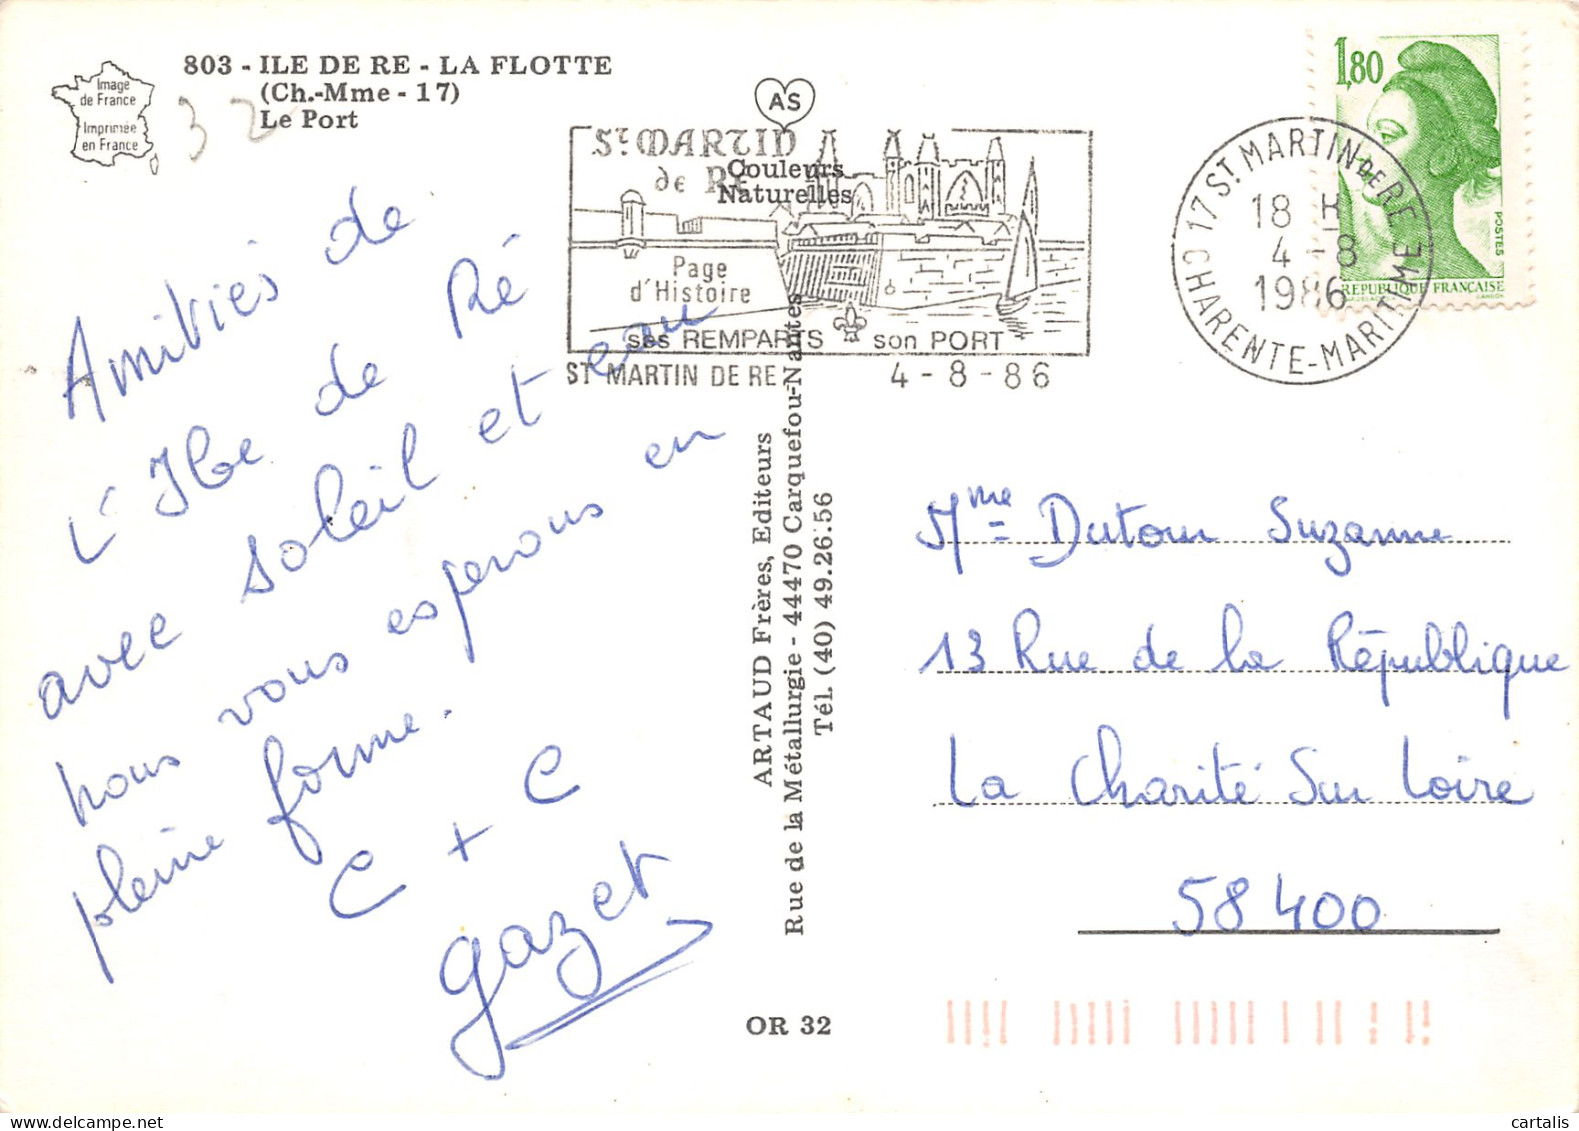 Image
de France
Imprimée
en France
803 - ILE DE RE - LA FLOTTE
(Ch.-Mme - 17)
Le Port
32
AS
Couleurs
Naturelles
St MARTIN
de RE
Page
d'Histoire
ses REMPARTS son PORT
ST MARTIN DE RE 4-8-86
17 ST MARTIN DE RE
18 H
4-8
1986
CHARENTE-MARITIME
1,80
POSTES
REPUBLIQUE FRANÇAISE
GANDON
Amitiés de
l'Ile de Ré
avec soleil et eau
nous vous esperons en
pleine forme.
C + C
Gazet
ARTAUD Frères, Editeurs
Rue de la Métallurgie - 44470 Carquefou-Nantes
Tél. (40) 49.26.56
OR 32
Mme Dutour Suzanne
13 Rue de la République
La Charité Sur Loire
58400
cartalis